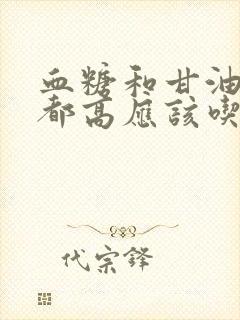 血糖和甘油
都高應該喫
代宗鋒